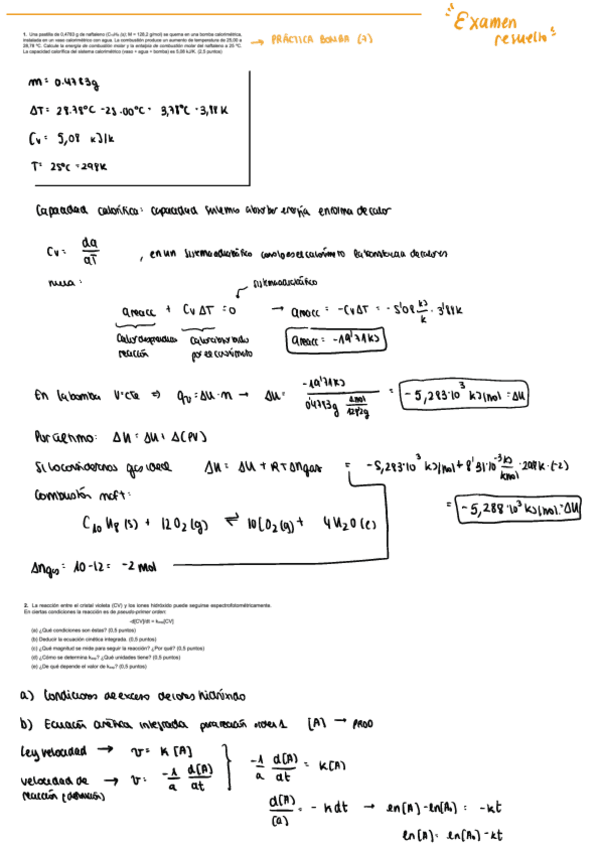 Examen
resuelto
1. Una pastilla de 0,4783 g de naftaleno (C₁₀H₈ (s); M = 128,2 g/mol) se quema en una bomba calorimétrica,
instalada en un vaso calorimétrico con agua. La combustión produce un aumento de temperatura de 25,00 a
28,78 ºC. Calcule la energía de combustión molar y la entalpía de combustión molar del naftaleno a 25 ºC.
La capacidad calorífica del sistema calorimétrico (vaso + agua + bomba) es 5,08 kJ/K. (2,5 puntos)
→ PRÁCTICA BOMBA (7)
m = 0.4783g
ΔT = 28.78ºC - 25.00ºC = 3,78ºC = 3,78 K
Cv = 5,08 kJ/K
T = 25ºC = 298K
Capacidad calorífica: capacidad sistema absorber energía en forma de calor
Cv = dq/dT , en un sistema adiabático como lo es el calorímetro la transferencia de calor es
nula:
sistema adiabático
qreacc + CvΔT = 0 → qreacc = -CvΔT = -5'08 kJ/K · 3'78K
calor desprendido reacción
calor absorbido por el calorímetro
qreacc = -19'21kJ
En la bomba V=cte ⇒ qv = ΔU·n → ΔU = -19'21kJ / 0'4783g 1mol/128'2g = -5,283·10³ kJ/mol = ΔU
ΔH = ΔU + Δ(PV)
Si lo consideramos gas ideal ΔH = ΔU + RTΔngas = -5,283·10³ kJ/mol + 8'31·10⁻³ kJ/kmol · 298K · (-2)
Combustión naft:
= -5,288·10³ kJ/mol = ΔH
C₁₀H₈(s) + 12O₂(g) ⇌ 10CO₂(g) + 4H₂O(l)
Δngas = 10-12 = -2 mol
2. La reacción entre el cristal violeta (CV) y los iones hidróxido puede seguirse espectrofotométricamente.
En ciertas condiciones la reacción es de pseudo-primer orden:
-d[CV]/dt = kₑₓₚ[CV]
(a) ¿Qué condiciones son éstas? (0,5 puntos)
(b) Deducir la ecuación cinética integrada. (0,5 puntos)
(c) ¿Qué magnitud se mide para seguir la reacción? ¿Por qué? (0,5 puntos)
(d) ¿Cómo se determina kₑₓₚ? ¿Qué unidades tiene? (0,5 puntos)
(e) ¿De qué depende el valor de kₑₓₚ? (0,5 puntos)
a) Condiciones de exceso de iones hidróxido
b) Ecuación cinética integrada para reacción orden 1 [A] → PROD
Ley velocidad → v = K[A]
velocidad de reacción (definición) → v = -1/a d[A]/dt
-1/a d[A]/dt = K[A]
d[A]/[A] = -kdt → ln[A]-ln[A₀] = -kt
ln[A] = ln[A₀]-kt